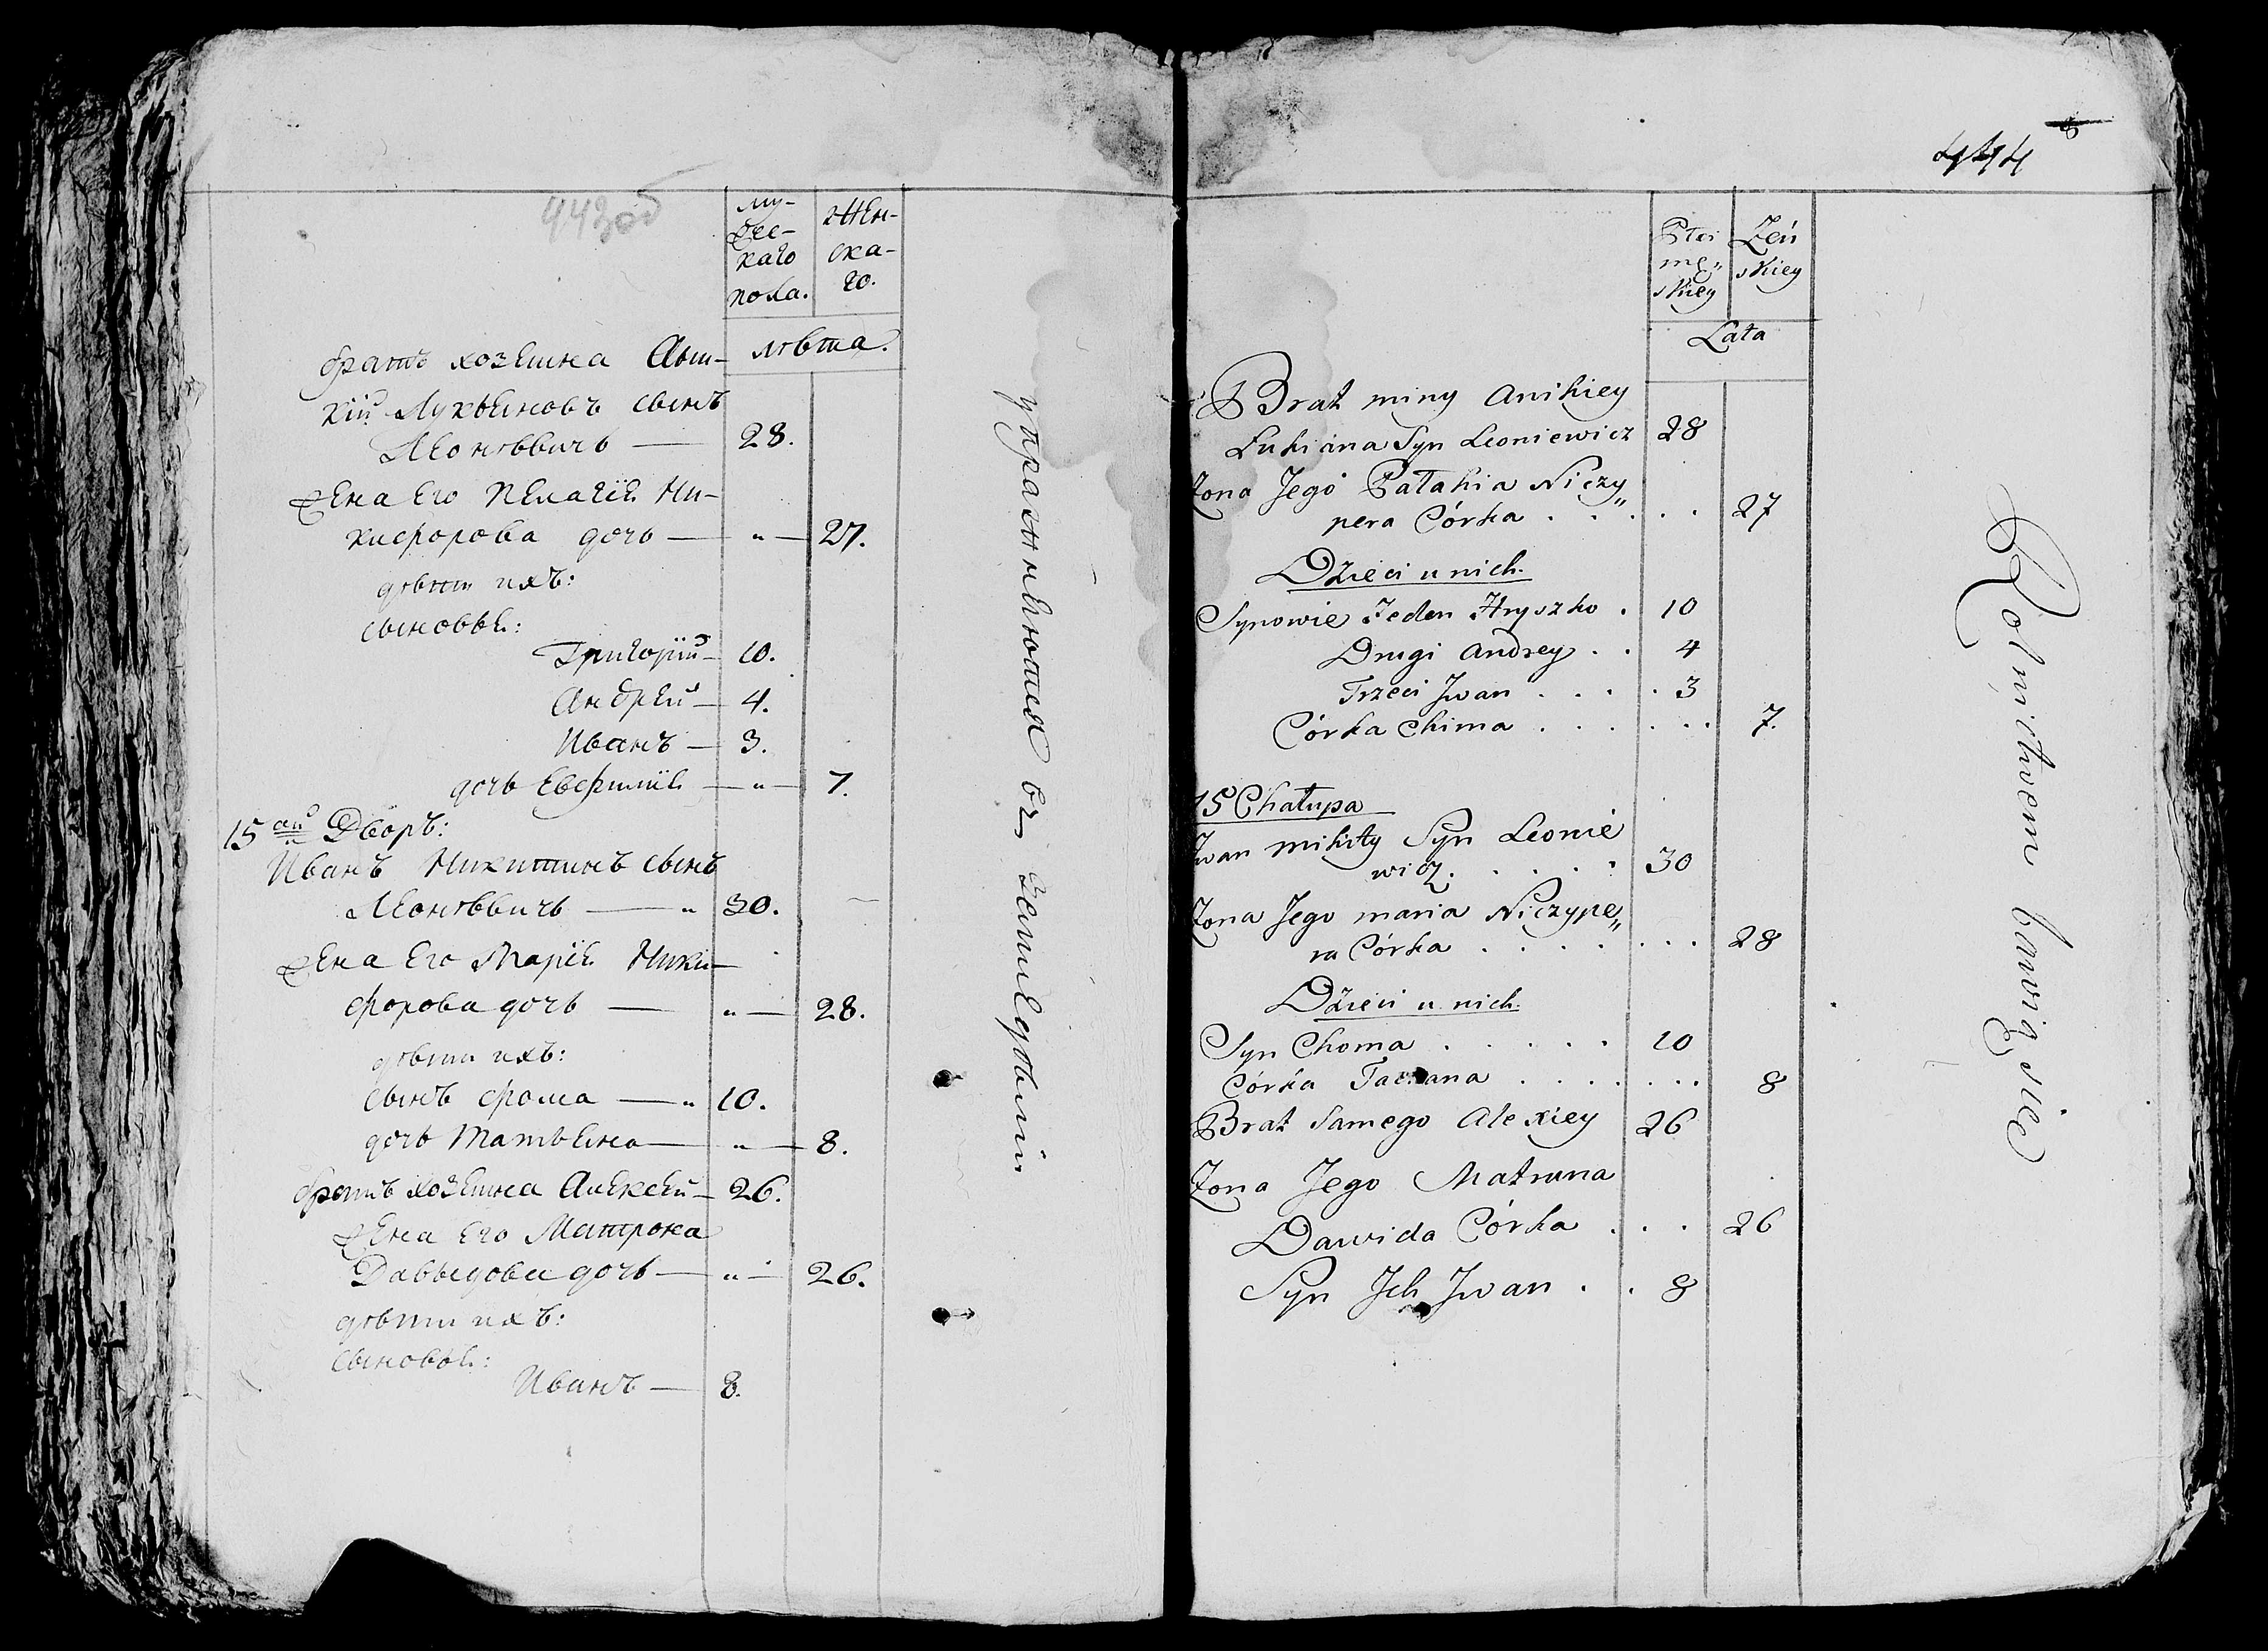 443об
му-
жес-
каго
пола.
жен-
ска-
го.
лѣта.
братъ хозяина Ани-
кій Лукьяновъ сынъ
Леонѣвичь — 28.
жена его Пелагія Ни-
кифорова дочь — " — 27.
дѣти ихъ:
сыновья:
Григорій — 10.
Андрей — 4.
Иванъ — 3.
дочь Евфимія — " — 7.
15 ый Дворъ:
Иванъ Никитинъ сынъ
Леонѣвичь — " 30.
жена его Марія Ники-
форова дочь — " — 28.
дѣти ихъ:
сынъ Фома — " 10.
дочь Татьяна — " — 8.
братъ хозяина Алексей — 26.
жена его Матрона
Давыдова дочь — " — 26.
дѣти ихъ:
сыновья:
Иванъ — 8.
упражняются въ земледѣліи
8
444
Płci
mę„
skiey
Żeń
skiey
Lata
Brat miny Anikiey
Łukiana Syn Leoniewicz 28
Żona Jego Pałahia Niczy„
pera Córka . . . . . 27
Dzieci u nich.
Synowie Jeden Hryszko . 10
Drugi Andrey . . 4
Trzeci Jwan . . . . 3
Córka Chima . . . . . . 7.
15 Chałupa
Jwan mikity Syn Leonie
wicz . . . . . 30
Żona Jego maria Niczype„
ra Córka . . . . . . . 28
Dzieci u nich
Syn Choma . . . . . 10
Córka Taciana . . . . . . . 8
Brat Samego Alexiey 26
Żona Jego Matruna
Dawida Córka . . . 26
Syn Jch Jwan . . 8
Rolnictwem bawią się